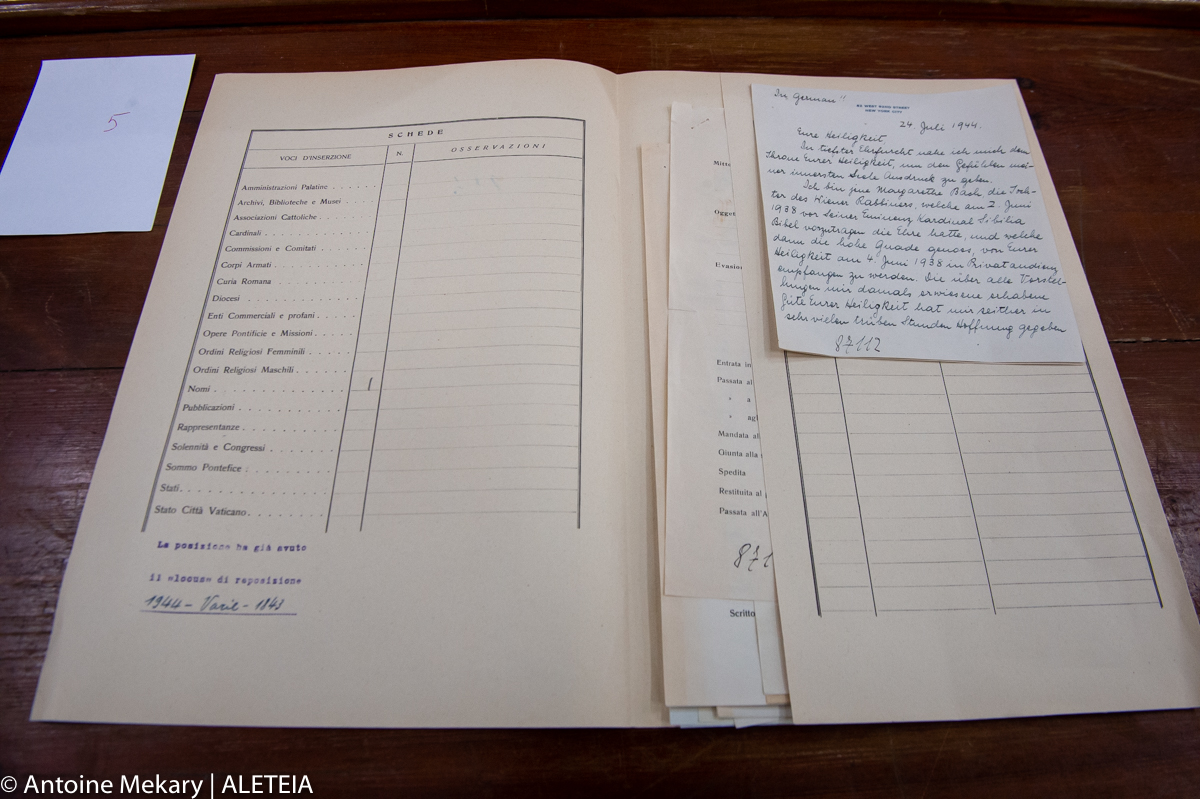 5
SCHEDE
VOCI D'INSERZIONE N. OSSERVAZIONI
Amministrazioni Palatine . . . . . . .
Archivi, Biblioteche e Musei . . . .
Associazioni Cattoliche . . . . . . . .
Cardinali . . . . . . . . . . . . . . .
Commissioni e Comitati . . . . . . .
Corpi Armati . . . . . . . . . . . . .
Curia Romana . . . . . . . . . . . . .
Diocesi . . . . . . . . . . . . . . . .
Enti Commerciali e profani . . . . .
Opere Pontificie e Missioni . . . . .
Ordini Religiosi Femminili . . . . . .
Ordini Religiosi Maschili . . . . . . .
Nomi . . . . . . . . . . . . . . . . . 1
Pubblicazioni . . . . . . . . . . . . .
Rappresentanze . . . . . . . . . . . .
Solennità e Congressi . . . . . . . .
Sommo Pontefice . . . . . . . . . . .
Stati . . . . . . . . . . . . . . . . .
Stato Città Vaticano . . . . . . . . .
La posizione ha già avuto
il «locus» di reposizione
1944 - Varie - 1843
Mitte
Ogget
Evasion
Entrata in
Passata al
» a
» agl
Mandata al
Giunta alla
Spedita
Restituita al
Passata all'A
871
Scritto
In German"
NEW YORK CITY
24. Juli 1944.
Eure Heiligkeit
In tiefster Ehrfurcht nahe ich mich dem
Throne Eurer Heiligkeit, um den Gefühlen mei-
ner innersten Seele Ausdruck zu geben.
Ich bin jene Margarethe Bach, die Toch-
ter des Wiener Rabbiners, welche am 2. Juni
1938 vor Seiner Eminenz Kardinal Sibilia
Bibel vorzutragen die Ehre hatte, und welche
dann die hohe Gnade genoss, von Eurer
Heiligkeit am 4. Juni 1938 in Privataudienz
empfangen zu werden. Die über alle Vorstel-
lungen mir damals erwiesene erhabene
Güte Eurer Heiligkeit hat mir seither in
sehr vielen trüben Stunden Hoffnung gegeben
87112
© Antoine Mekary | ALETEIA